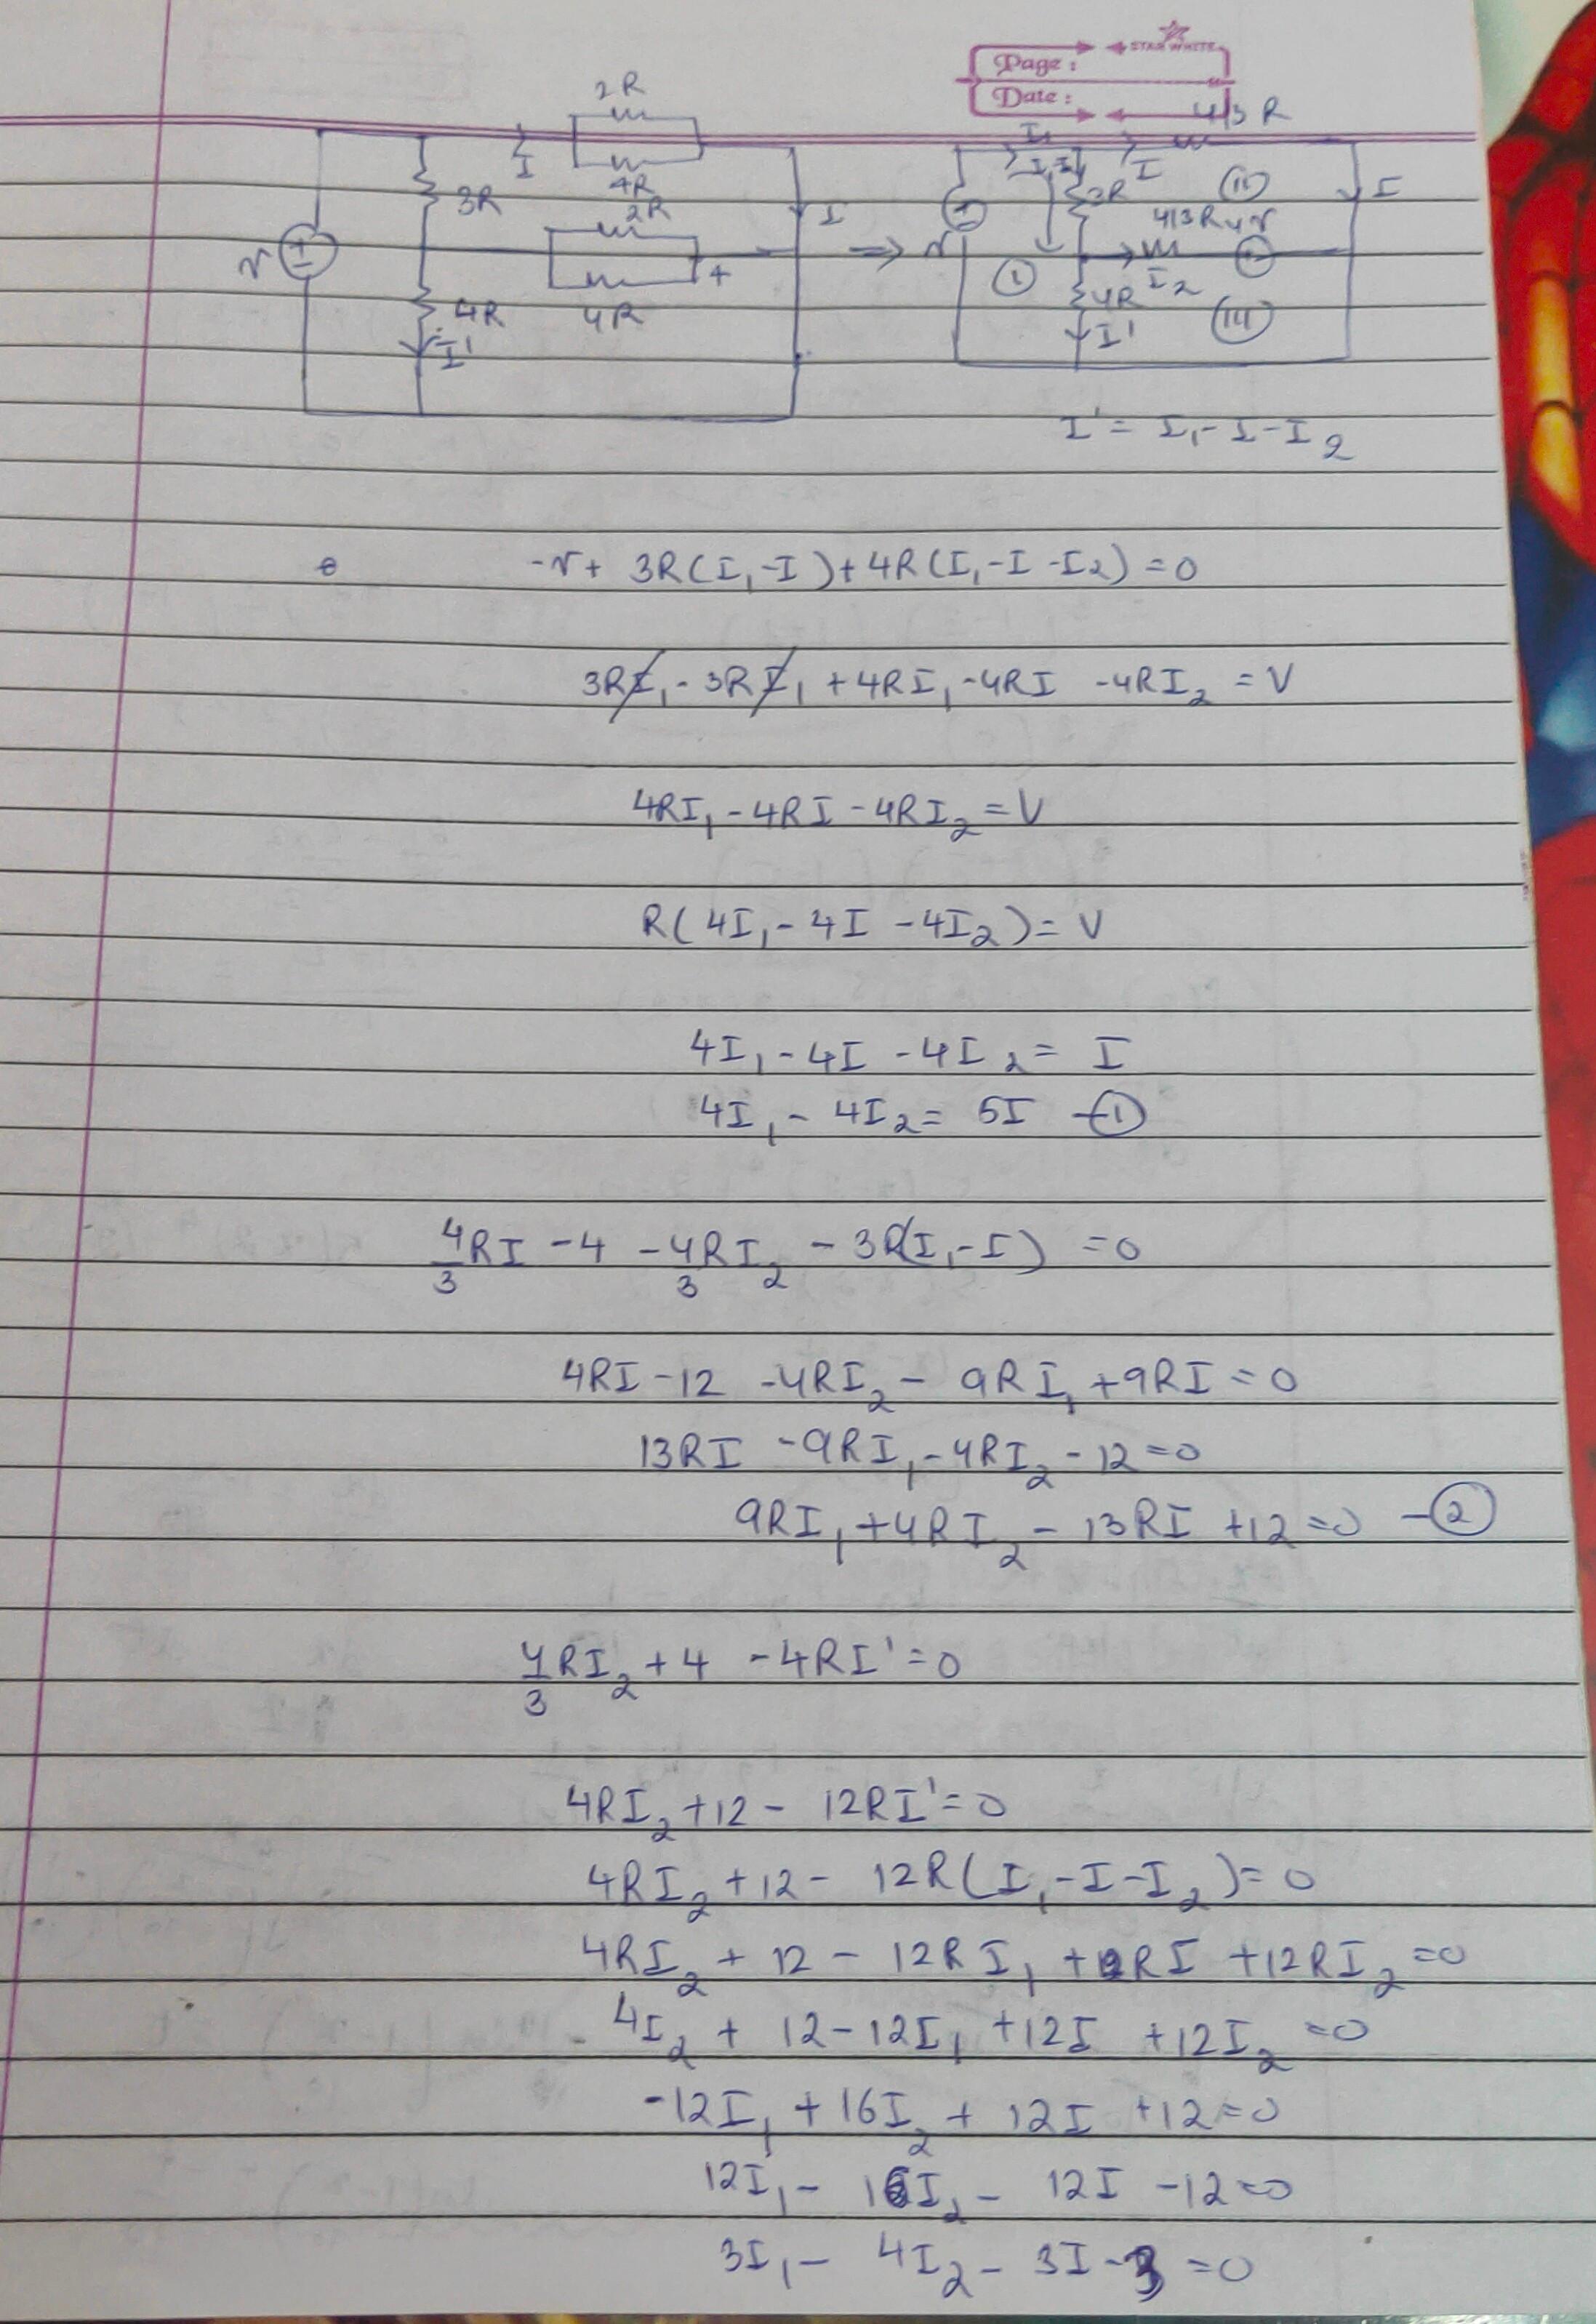 STAR WHITE
Page :
Date :
2R
4R
I
3R
2R
4R
+
4R
I'
I
v
+
-
⇒
I₁
I₁-I
I
4/3 R
3R
I
4/3R
4v
I₂
4R
I'
v
①
(II)
(III)
I' = I₁ - I - I₂
-v + 3R(I₁-I) + 4R(I₁-I-I₂) = 0
3RI₁ - 3RI₁ + 4RI₁ - 4RI - 4RI₂ = V
4RI₁ - 4RI - 4RI₂ = V
R(4I₁ - 4I - 4I₂) = V
4I₁ - 4I - 4I₂ = I
4I₁ - 4I₂ = 5I -①
4/3 RI - 4 - 4/3 RI₂ - 3R(I₁-I) = 0
4RI - 12 - 4RI₂ - 9RI₁ + 9RI = 0
13RI - 9RI₁ - 4RI₂ - 12 = 0
9RI₁ + 4RI₂ - 13RI + 12 = 0 -②
4/3 RI₂ + 4 - 4RI' = 0
4RI₂ + 12 - 12RI' = 0
4RI₂ + 12 - 12R(I₁-I-I₂) = 0
4RI₂ + 12 - 12RI₁ + 12RI + 12RI₂ = 0
4I₂ + 12 - 12I₁ + 12I + 12I₂ = 0
-12I₁ + 16I₂ + 12I + 12 = 0
12I₁ - 16I₂ - 12I - 12 = 0
3I₁ - 4I₂ - 3I - 3 = 0